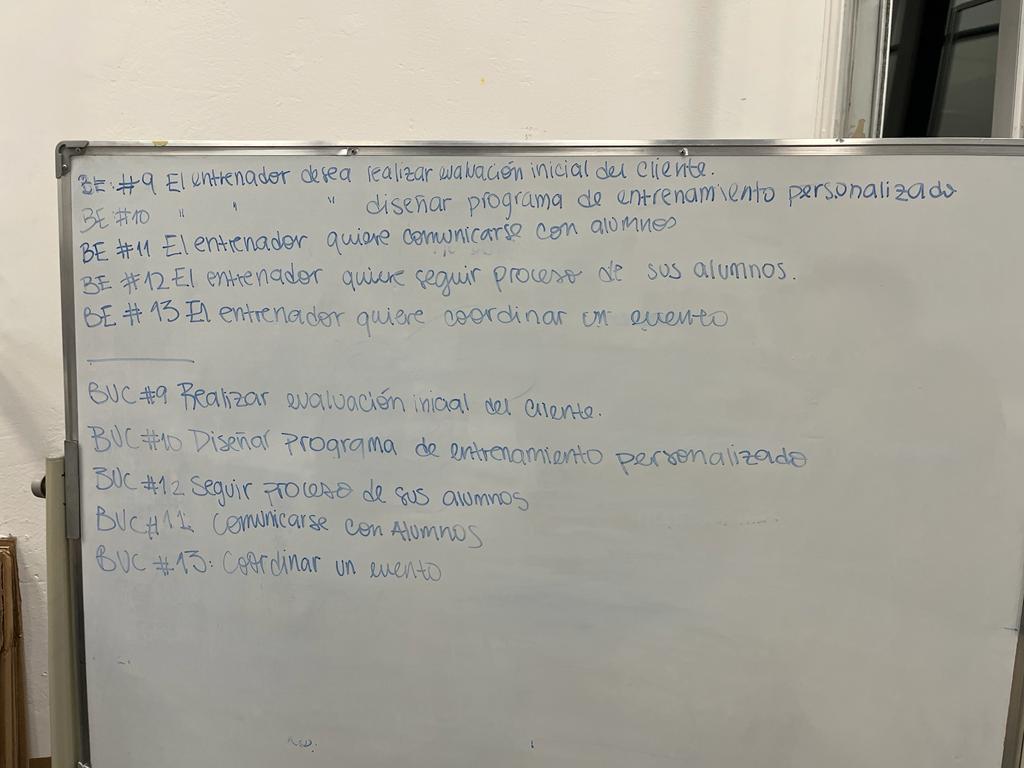 BE: #9 El entrenador desea realizar evaluación inicial del cliente.
BE #10 " " " diseñar programa de entrenamiento personalizado
BE #11 El entrenador quiere comunicarse con alumnos
BE #12 El entrenador quiere seguir proceso de sus alumnos.
BE #13 El entrenador quiere coordinar un evento
BUC #9 Realizar evaluación inicial del cliente.
BUC #10 Diseñar programa de entrenamiento personalizado
BUC #12 Seguir proceso de sus alumnos
BUC #11: Comunicarse con Alumnos
BUC #13: Coordinar un evento